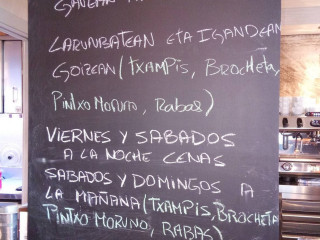 LARUNBATEAN ETA IGANDEAN
GOIZEAN (TXAMPIS, BROCHETA,
PINTXO MORUNO, RABAS)
VIERNES Y SABADOS
A LA NOCHE CENAS
SABADOS Y DOMINGOS A
LA MAÑANA (TXAMPIS, BROCHETA
PINTXO MORUNO, RABAS)